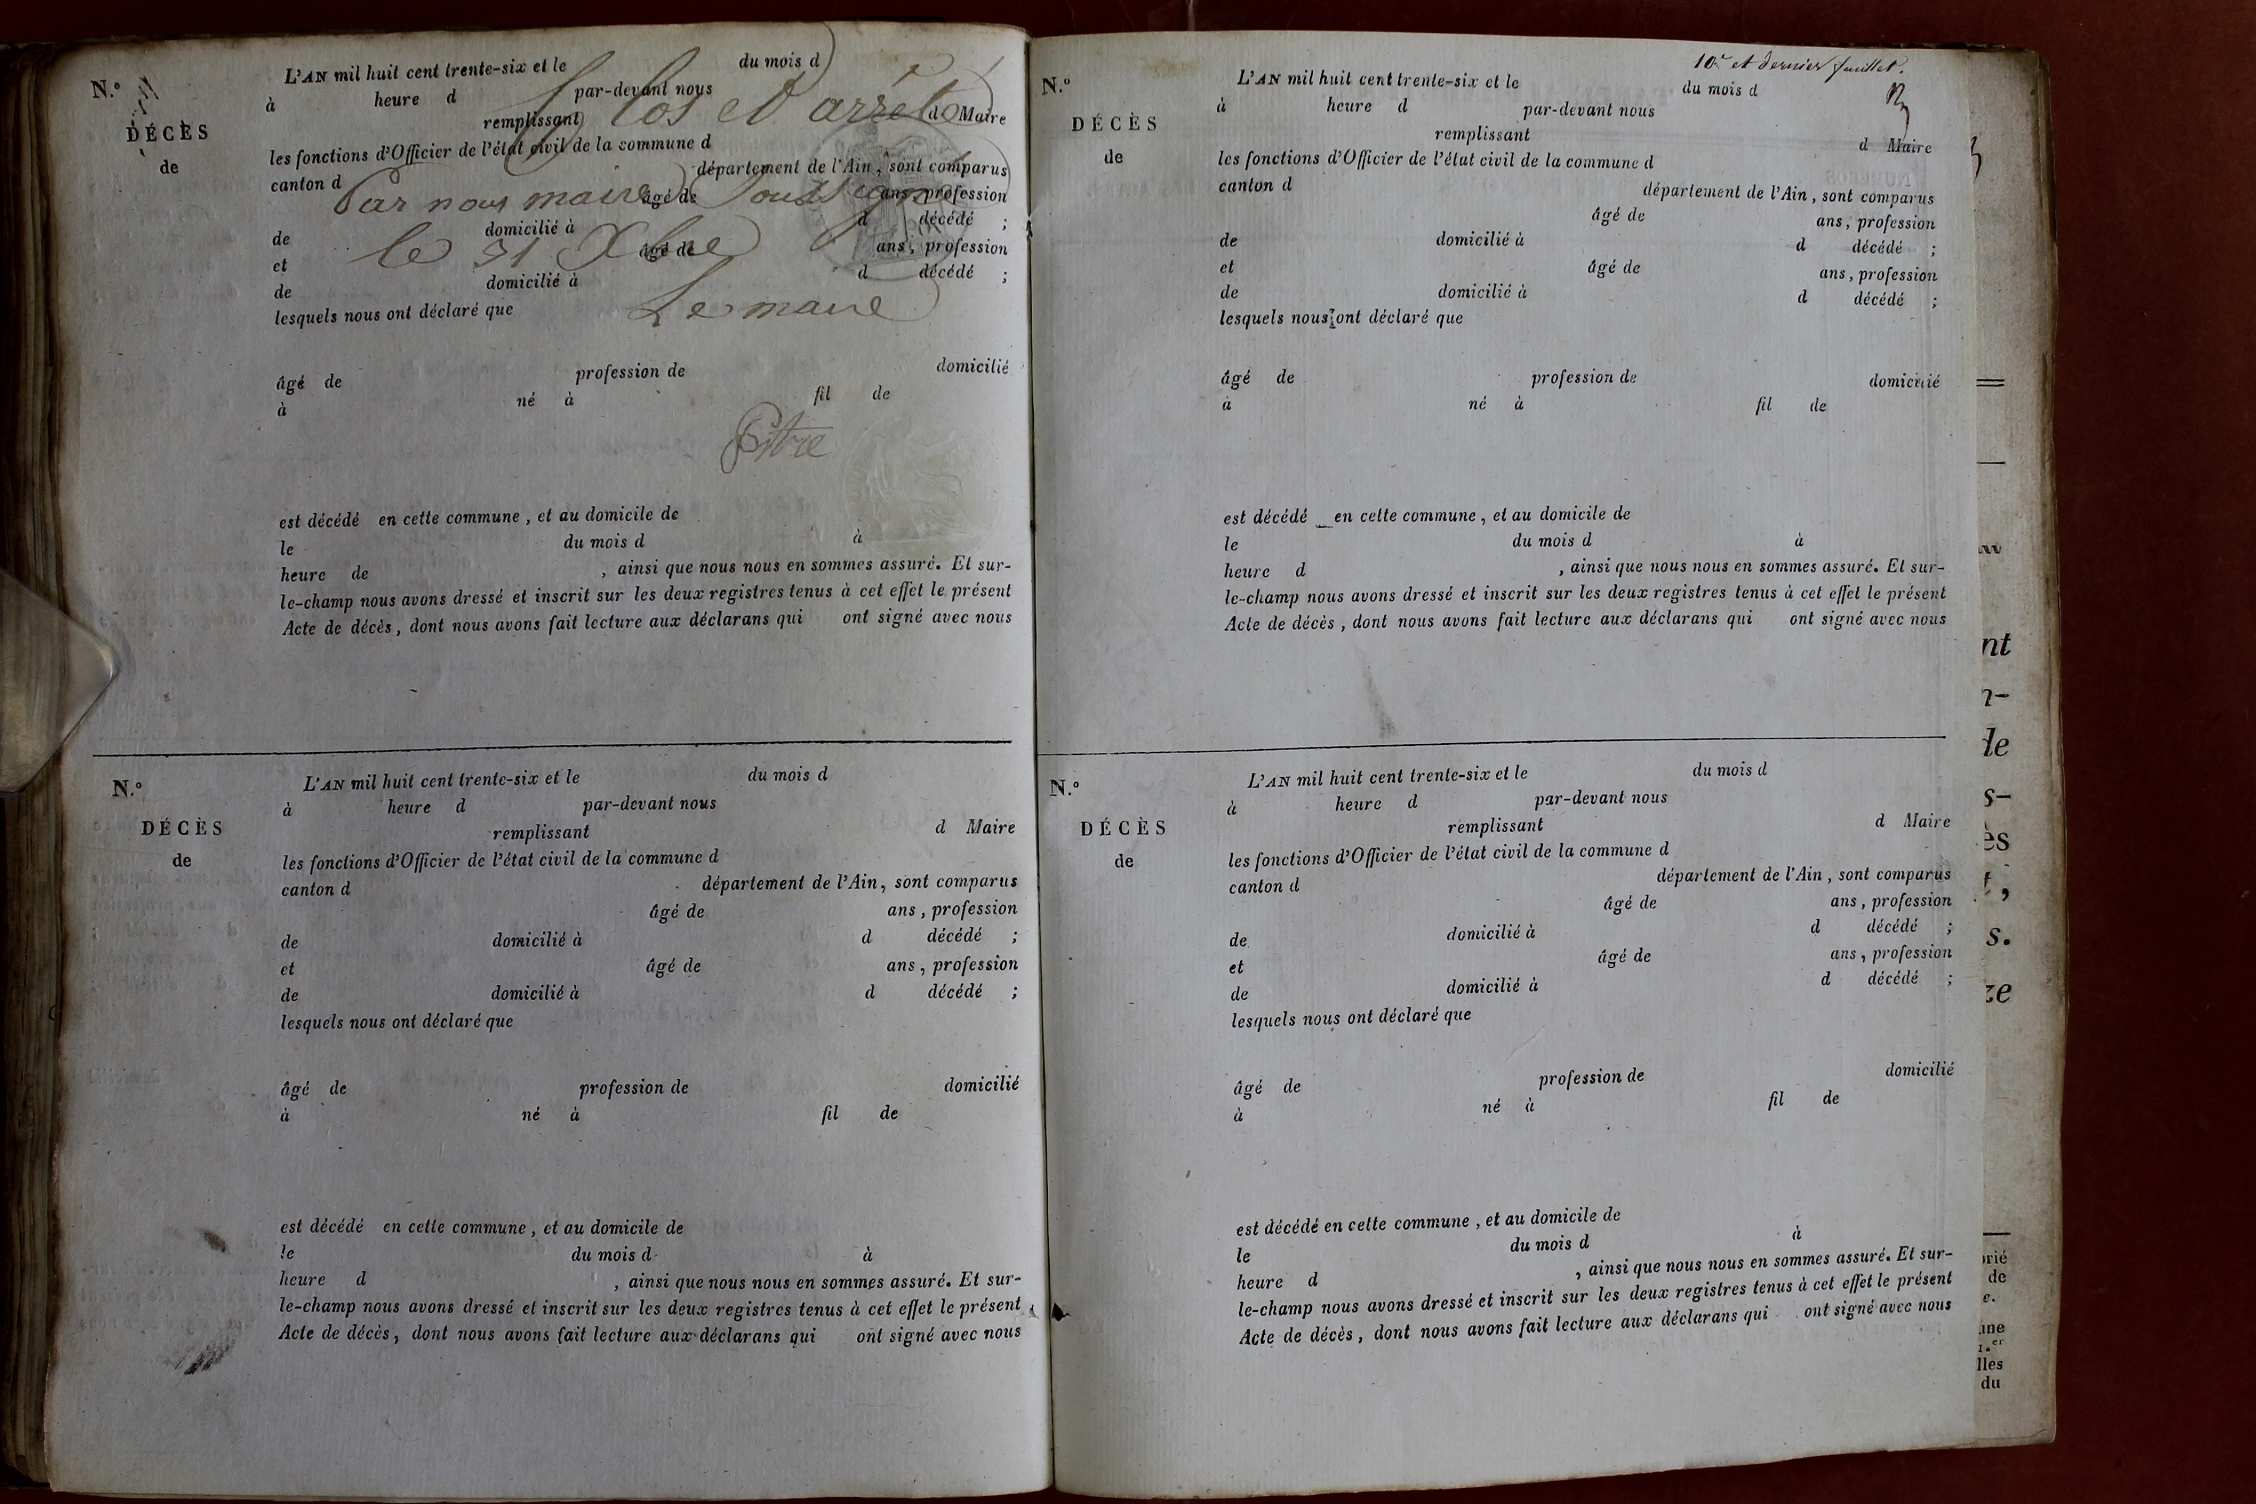 N.º
DÉCÈS
de
L'AN mil huit cent trente-six et le du mois d
à heure d par-devant nous
Clos et arrêté
remplissant d Maire
les fonctions d'Officier de l'état civil de la commune d
canton d département de l'Ain, sont comparus
Par nous maire Soussigné
âgé de ans, profession
de domicilié à d décédé ;
le 31 Xbre
et âgé de ans, profession
de domicilié à d décédé ;
lesquels nous ont déclaré que
Le maire
âgé de profession de domicilié
à né à fil de
est décédé en cette commune, et au domicile de
le du mois d à
heure de , ainsi que nous nous en sommes assuré. Et sur-
le-champ nous avons dressé et inscrit sur les deux registres tenus à cet effet le présent
Acte de décès, dont nous avons fait lecture aux déclarans qui ont signé avec nous
N.º
DÉCÈS
de
L'AN mil huit cent trente-six et le du mois d
à heure d par-devant nous
remplissant d Maire
les fonctions d'Officier de l'état civil de la commune d
canton d département de l'Ain, sont comparus
âgé de ans, profession
de domicilié à d décédé ;
et âgé de ans, profession
de domicilié à d décédé ;
lesquels nous ont déclaré que
âgé de profession de domicilié
à né à fil de
est décédé en cette commune, et au domicile de
le du mois d à
heure d , ainsi que nous nous en sommes assuré. Et sur-
le-champ nous avons dressé et inscrit sur les deux registres tenus à cet effet le présent
Acte de décès, dont nous avons fait lecture aux déclarans qui ont signé avec nous
10e et dernier feuillet.
N.º
DÉCÈS
de
L'AN mil huit cent trente-six et le du mois d
à heure d par-devant nous
remplissant d Maire
les fonctions d'Officier de l'état civil de la commune d
canton d département de l'Ain, sont comparus
âgé de ans, profession
de domicilié à d décédé ;
et âgé de ans, profession
de domicilié à d décédé ;
lesquels nous ont déclaré que
âgé de profession de domicilié
à né à fil de
est décédé en cette commune, et au domicile de
le du mois d à
heure d , ainsi que nous nous en sommes assuré. Et sur-
le-champ nous avons dressé et inscrit sur les deux registres tenus à cet effet le présent
Acte de décès, dont nous avons fait lecture aux déclarans qui ont signé avec nous
N.º
DÉCÈS
de
L'AN mil huit cent trente-six et le du mois d
à heure d par-devant nous
remplissant d Maire
les fonctions d'Officier de l'état civil de la commune d
canton d département de l'Ain, sont comparus
âgé de ans, profession
de domicilié à d décédé ;
et âgé de ans, profession
de domicilié à d décédé ;
lesquels nous ont déclaré que
âgé de profession de domicilié
à né à fil de
est décédé en cette commune, et au domicile de
le du mois d à
heure d , ainsi que nous nous en sommes assuré. Et sur-
le-champ nous avons dressé et inscrit sur les deux registres tenus à cet effet le présent
Acte de décès, dont nous avons fait lecture aux déclarans qui ont signé avec nous